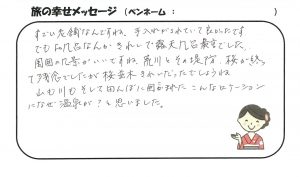 旅の幸せメッセージ (ペンネーム : )
すごい老舗なんですね、手入れがされていて良かったです
でもお風呂なんかきれいで露天風呂最高でした。
周囲の風景がいいですね。荒川とその堤防、桜が終って
残念でしたが桜並木きれいだったでしょうね
山も川もそして田んぼに囲まれたこんなロケーション
になぜ温泉が?と思いました。